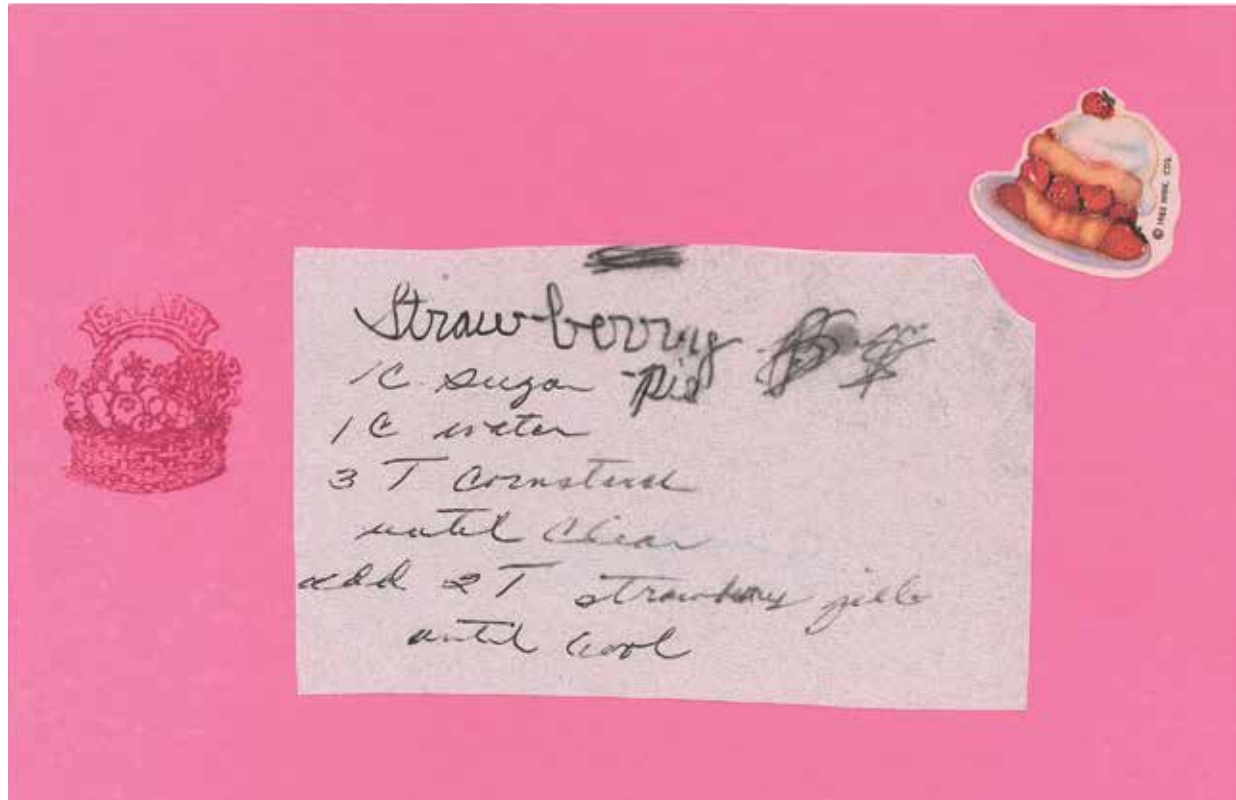 Strawberry
pie
1 C. sugar
1 C water
3 T cornstarch
until clear
add 2 T strawberry jello
until cool
© 1983 MARK COS.